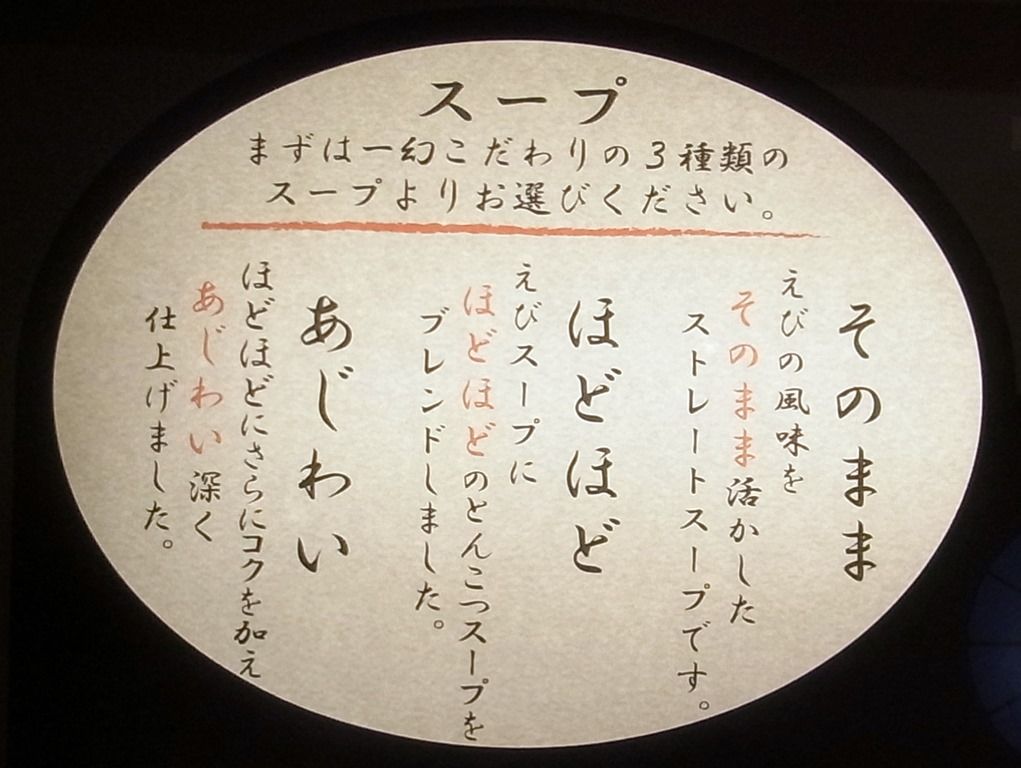 スープ
まずは一幻こだわりの3種類の
スープよりお選びください。
そのまま
えびの風味を
そのまま活かした
ストレートスープです。
ほどほど
えびスープに
ほどほどのとんこつスープを
ブレンドしました。
あじわい
ほどほどにさらにコクを加え
あじわい深く
仕上げました。